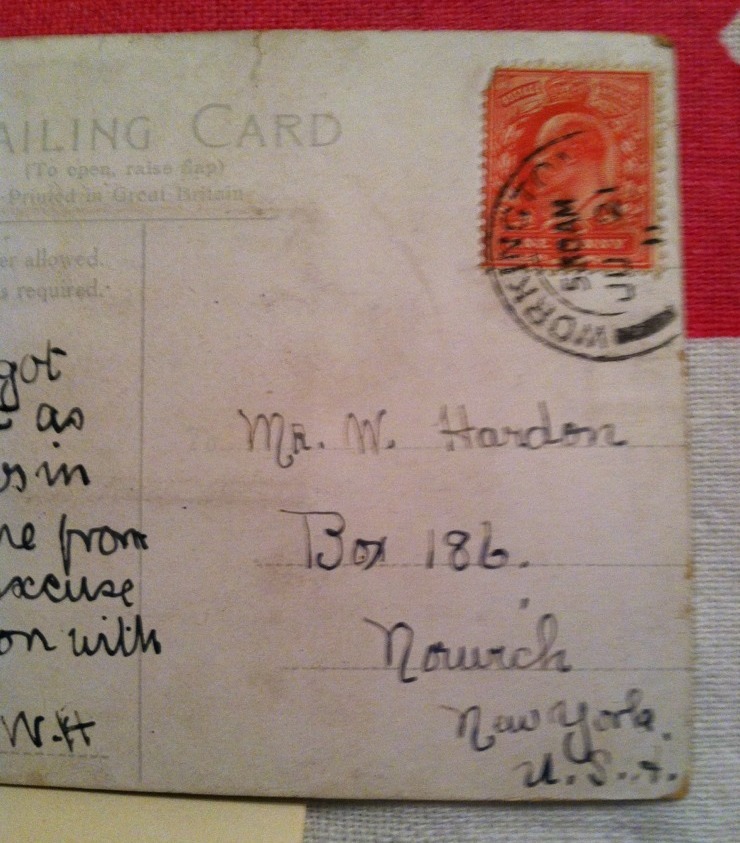 AILING CARD
(To open, raise flap)
Printed in Great Britain
er allowed.
s required.
WORKINGTON
JU 21
11
got
as
s in
ne from
excuse
on with
W.H
Mr. W. Hardon
Box 186.
Norwich
New York.
U.S.A.